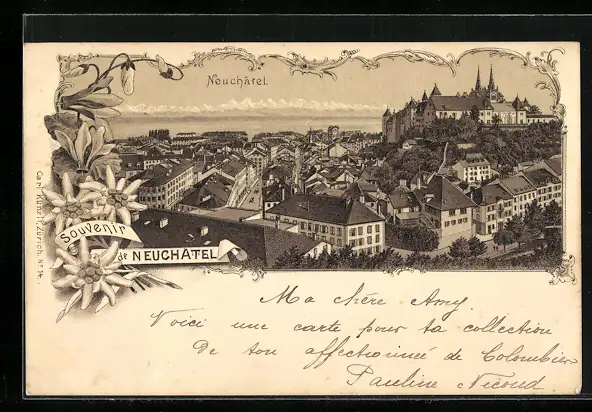 Neuchâtel.
Souvenir
de NEUCHÂTEL
Carl Künzli, Zürich. No 14.
Ma chère Amy
Voici une carte pour ta collection
De ton affectionnée de Colombier
Pauline Nicoud